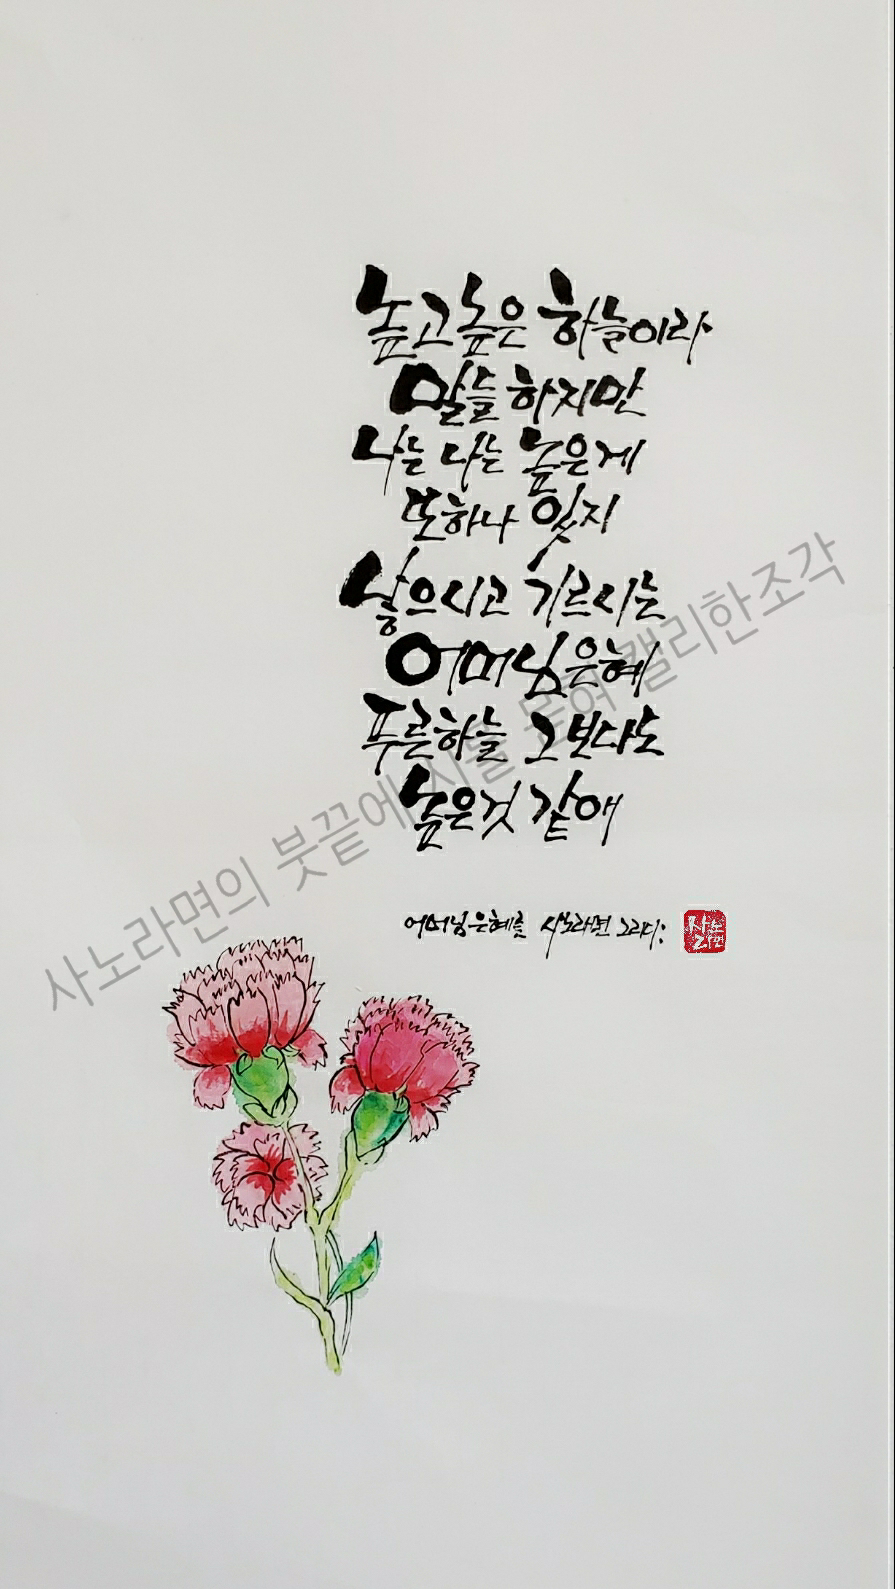 높고높은 하늘이라
말들하지만
나는 나는 높은게
또하나 있지
낳으시고 기르시는
어머님은혜
푸른하늘 그보다도
높은것 같애
어머님은혜를 사노라면 그리다:
사노라면
사노라면의 붓끝에 시를 묻혀 캘리한조각